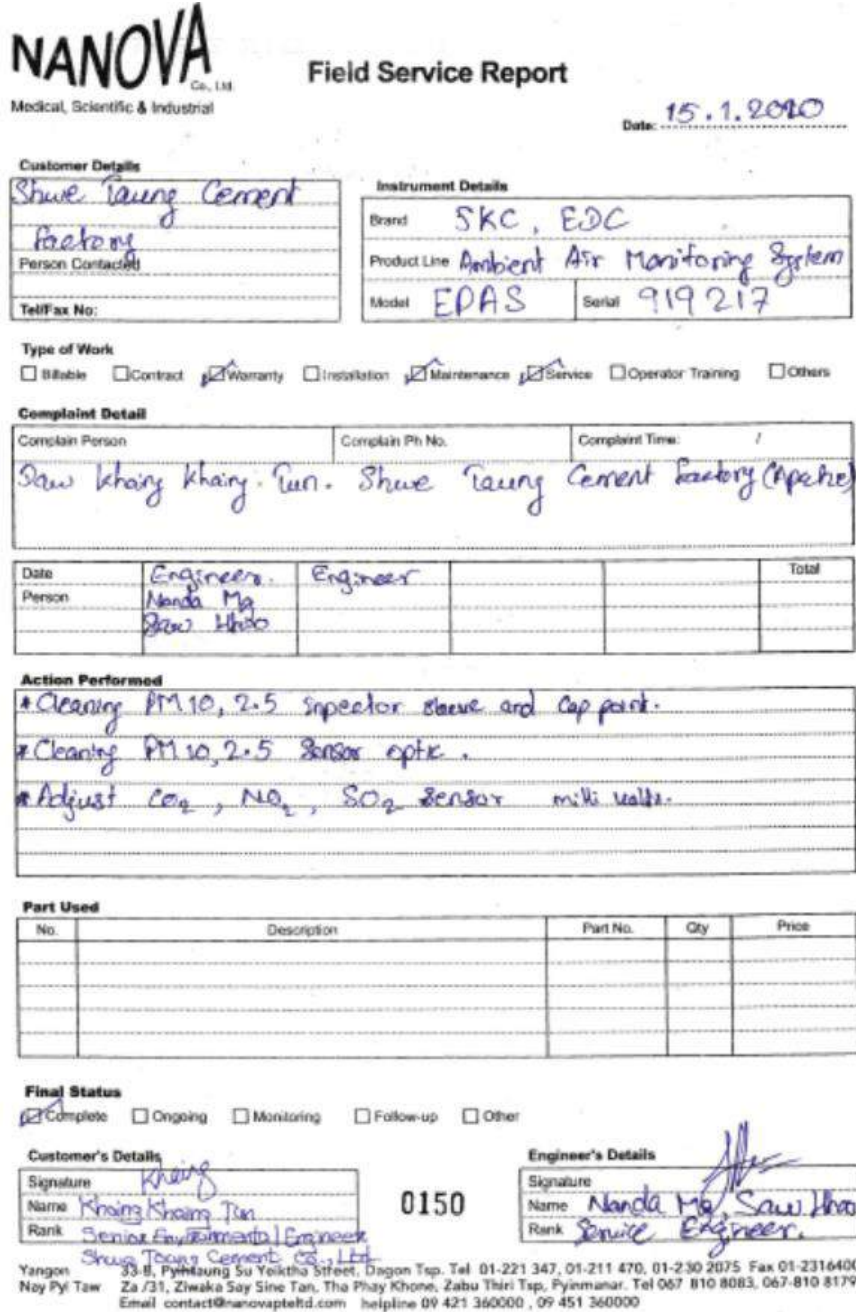 NANOVA
Co., Ltd.
Medical, Scientific & Industrial
Field Service Report
Date: 15.1.2020
Customer Details
Shwe Taung Cement
factory
Person Contacted
Tell/Fax No:
Instrument Details
Brand SKC, EDC
Product Line Ambient Air Monitoring System
Model EPAS Serial 919217
Type of Work
Billable Contract Warranty Installation Maintenance Service Operator Training Others
Complaint Detail
Complain Person Complain Ph No. Complaint Time: /
Daw Khaing Khaing Tun. Shwe Taung Cement factory (Apache)
Date Engineer. Engineer Total
Person Nanda Mg
Saw Hhoo
Action Performed
* Cleaning PM 10, 2.5 Inpector sleeve and Cap point.
* Cleaning PM 10, 2.5 Sensor optic.
* Adjust CO2, NO2, SO2 Sensor milli volts.
Part Used
No. Description Part No. Qty Price
Final Status
Complete Ongoing Monitoring Follow-up Other
Customer's Details
Signature Khaing
Name Khaing Khaing Tun
Rank Senior Environmental Engineer
Shwe Taung Cement Co., Ltd
0150
Engineer's Details
Signature
Name Nanda Mg, Saw Hhoo
Rank Service Engineer.
Yangon 33-B, Pyihtaung Su Yeiktha Street, Dagon Tsp. Tel 01-221 347, 01-211 470, 01-230 2075 Fax 01-2316400
Nay Pyi Taw Za /31, Ziwaka Say Sine Tan, Tha Phay Khone, Zabu Thiri Tsp, Pyinmanar. Tel 067 810 8083, 067-810 8179
Email contact@nanovapteltd.com helpline 09 421 360000 , 09 451 360000